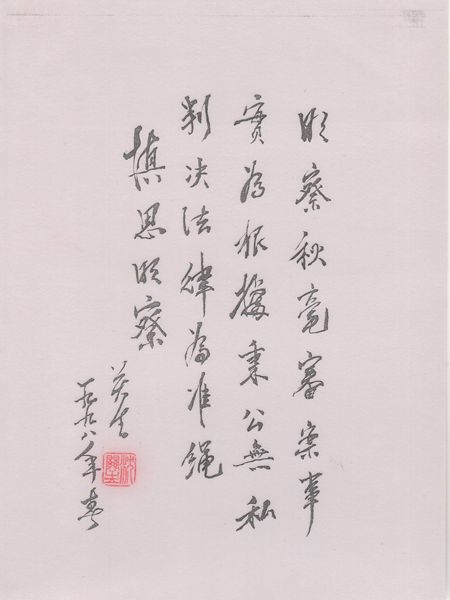 明察秋毫審案事
實為根據秉公無私
判决法律為准绳
慎思明察
一九九八年春